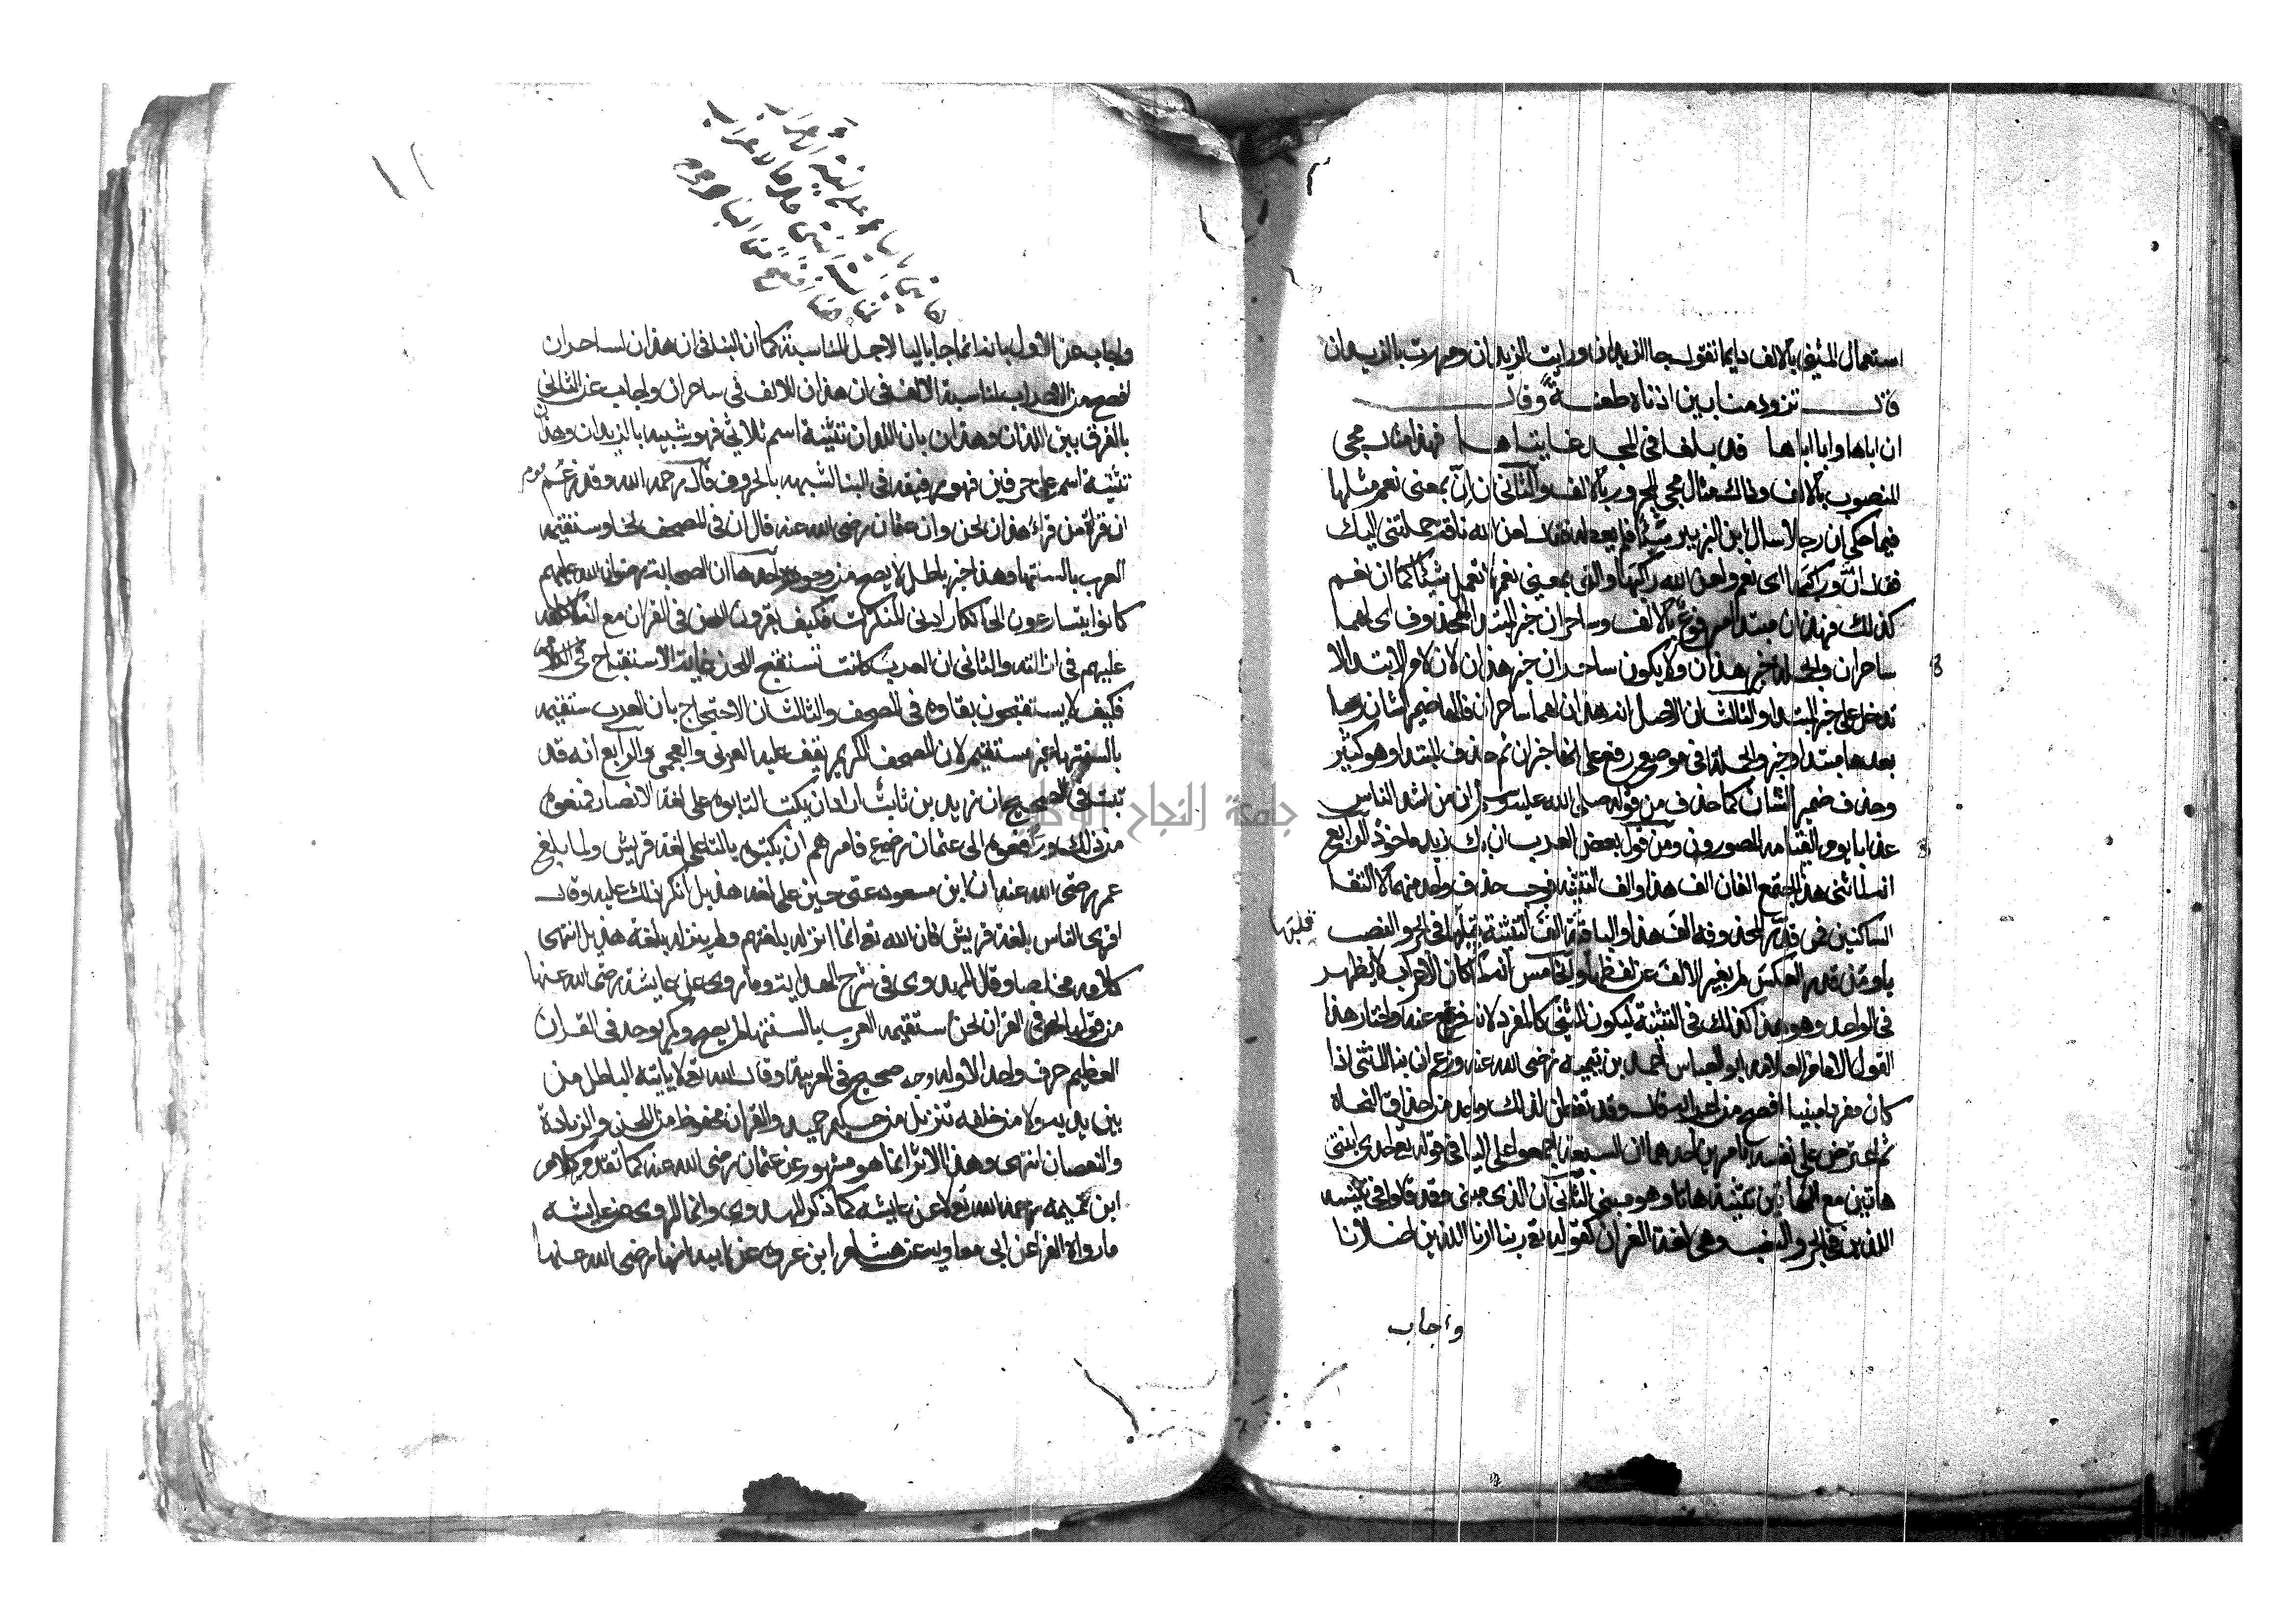 استعمال المثنى بالالف دايما تقول جا الزيدان ورايت الزيدان ومررت بالزيدان
قال تزود منا بين اذناه طعنة وقال
ان اباها وابا اباها قد بلغا في المجد غايتاها فهذا مثال مجي
المنصوب بالالف وذلك مثال مجي المجرور بالالف والثاني ان انّ بمعنى نعم مثلها
فيما حكي ان رجلا سال ابن الزبير شيئا فلم يعطه فقال لعن الله ناقة حملتني اليك
فقال انّ وراكبها اي نعم ولعن الله راكبها والتي بمعنى نعم لا تعمل شيئا كما ان نعم
كذلك فهذان مبتدا مرفوع بالالف وساحران خبر لمبتدا محذوف اي لهما
ساحران والجملة خبر هذان ولا يكون ساحران خبر هذان لان لام الابتدا لا
تدخل على خبر المبتدا والثالث ان الاصل انه هذان لهما ساحران فالها ضمير الشان وما
بعدها مبتدا وخبر والجملة في موضع رفع على انها خبر ان ثم حذف المبتدا وهو كثير
وحذف ضمير الشان كما حذف من قوله صلى الله عليه وسلم ان من اشد الناس
عذابا يوم القيامة المصورون ومن قول بعض العرب ان بك زيد ماخوذ الرابع
انه لما ثنى هذا اجتمع الفان الف هذا والف التثنية فوجب حذف واحد منهما لالتقا
الساكنين فمن قدر المحذوفة الف هذا والباقية الف التثنية قلبها في الجر والنصب
يقلبها
يا ومن قدر العكس لم يغير الالف عن لفظها والخامس انه لما كان الاعراب لا يظهر
في الواحد وهو هذا كذلك في التثنية ليكون المثنى كالمفرد لانه فرع عنه واختار هذا
القول الامام العلامه ابو العباس احمد بن تيميه رضى الله عنه وزعم ان بنا المثنى اذا
كان مفرده مبنيا افصح من اعرابه قال وقد تفطن لذلك واحد من حذاق النحاة
ثم اعترض على نفسه بامرين احدهما ان السبعة اجمعوا على اليا في قوله تع احدى ابنتي
هاتين مع ان هاتين تثنية هاتا وهو مبني الثاني ان الذي مبني وقد قالوا في تثنيته
اللذين في الجر والنصب وهي لغة القران كقوله تع ربنا ارنا اللذين اضلانا
واجاب
واجاب عن الاول بانه انما جا باليا لاجل المناسبة كما ان البنا في ان هذان لساحران
افصح من الاعراب لمناسبة الالف في ان هذان للالف في ساحران واجاب عن الثاني
بالفرق بين اللذان وهذان بان اللذان تثنية اسم ثلاثي فهو شبيه بالزيدان وهذان
تثنية اسم على حرفين فهو عريق في البنا لشبهه بالحروف قال رحمه الله وقد زعم قوم
ان قراة من قراء هذان لحن وان عثمان رضي الله عنه قال ان في المصحف لحنا وستقيمه
العرب بالسنتها وهذا خبر باطل لا يصح من وجوه احدها ان الصحابة رضوان الله عليهم
كانوا يتسارعون الى انكار ادنى المنكرات فكيف يقرون اللحن في القران مع انه لا كلفة
عليهم في ازالته والثاني ان العرب كانت تستقبح اللحن غاية الاستقباح في الكلام
فكيف لا يستقبحون بقاوه في المصحف والثالث ان الاحتجاج بان العرب ستقيمه
بالسنتها غير مستقيم لان المصحف الكريم يقف عليه العربي والعجمي والرابع انه قد
ثبت في الصحيح ان زيد بن ثابت اراد ان يكتب التابوه على لغة الانصار فمنعوه
من ذلك ورفعوه الى عثمان رضع فامرهم ان يكتبوه بالتا على لغة قريش ولما بلغ
عمر رضي الله عنه ان ابن مسعود عتى حين على لغة هذيل انكر ذلك عليه وقال
اقرى الناس بلغة قريش فان الله تع انما انزله بلغتهم ولم ينزله بلغة هذيل انتهى
كلامه ملخصا وقال المهدوي في شرح الهداية وما روي عن عايشة رضي الله عنها
من قولها ان في القران لحن ستقيمه العرب بالسنتها لم يصح ولم يوجد في القران
العظيم حرف واحد الا وله وجه صحيح في العربية وقال الله تع لا ياتيه الباطل من
بين يديه ولا من خلفه تنزيل من حكيم حميد والقران محفوظ من اللحن والزيادة
والنقصان انتهى وهذا الاثر انما هو مشهور عن عثمان رضي الله عنه كما تقدم في كلام
ابن تيميه رحمه الله تع لا عن عايشه كما ذكر المهدوي وانما المروي عن عايشه
ما رواه الفرا عن ابي معاويه عن هشام ابن عروه عن ابيه انها رضي الله عنها
جامعة النجاح الوطنية